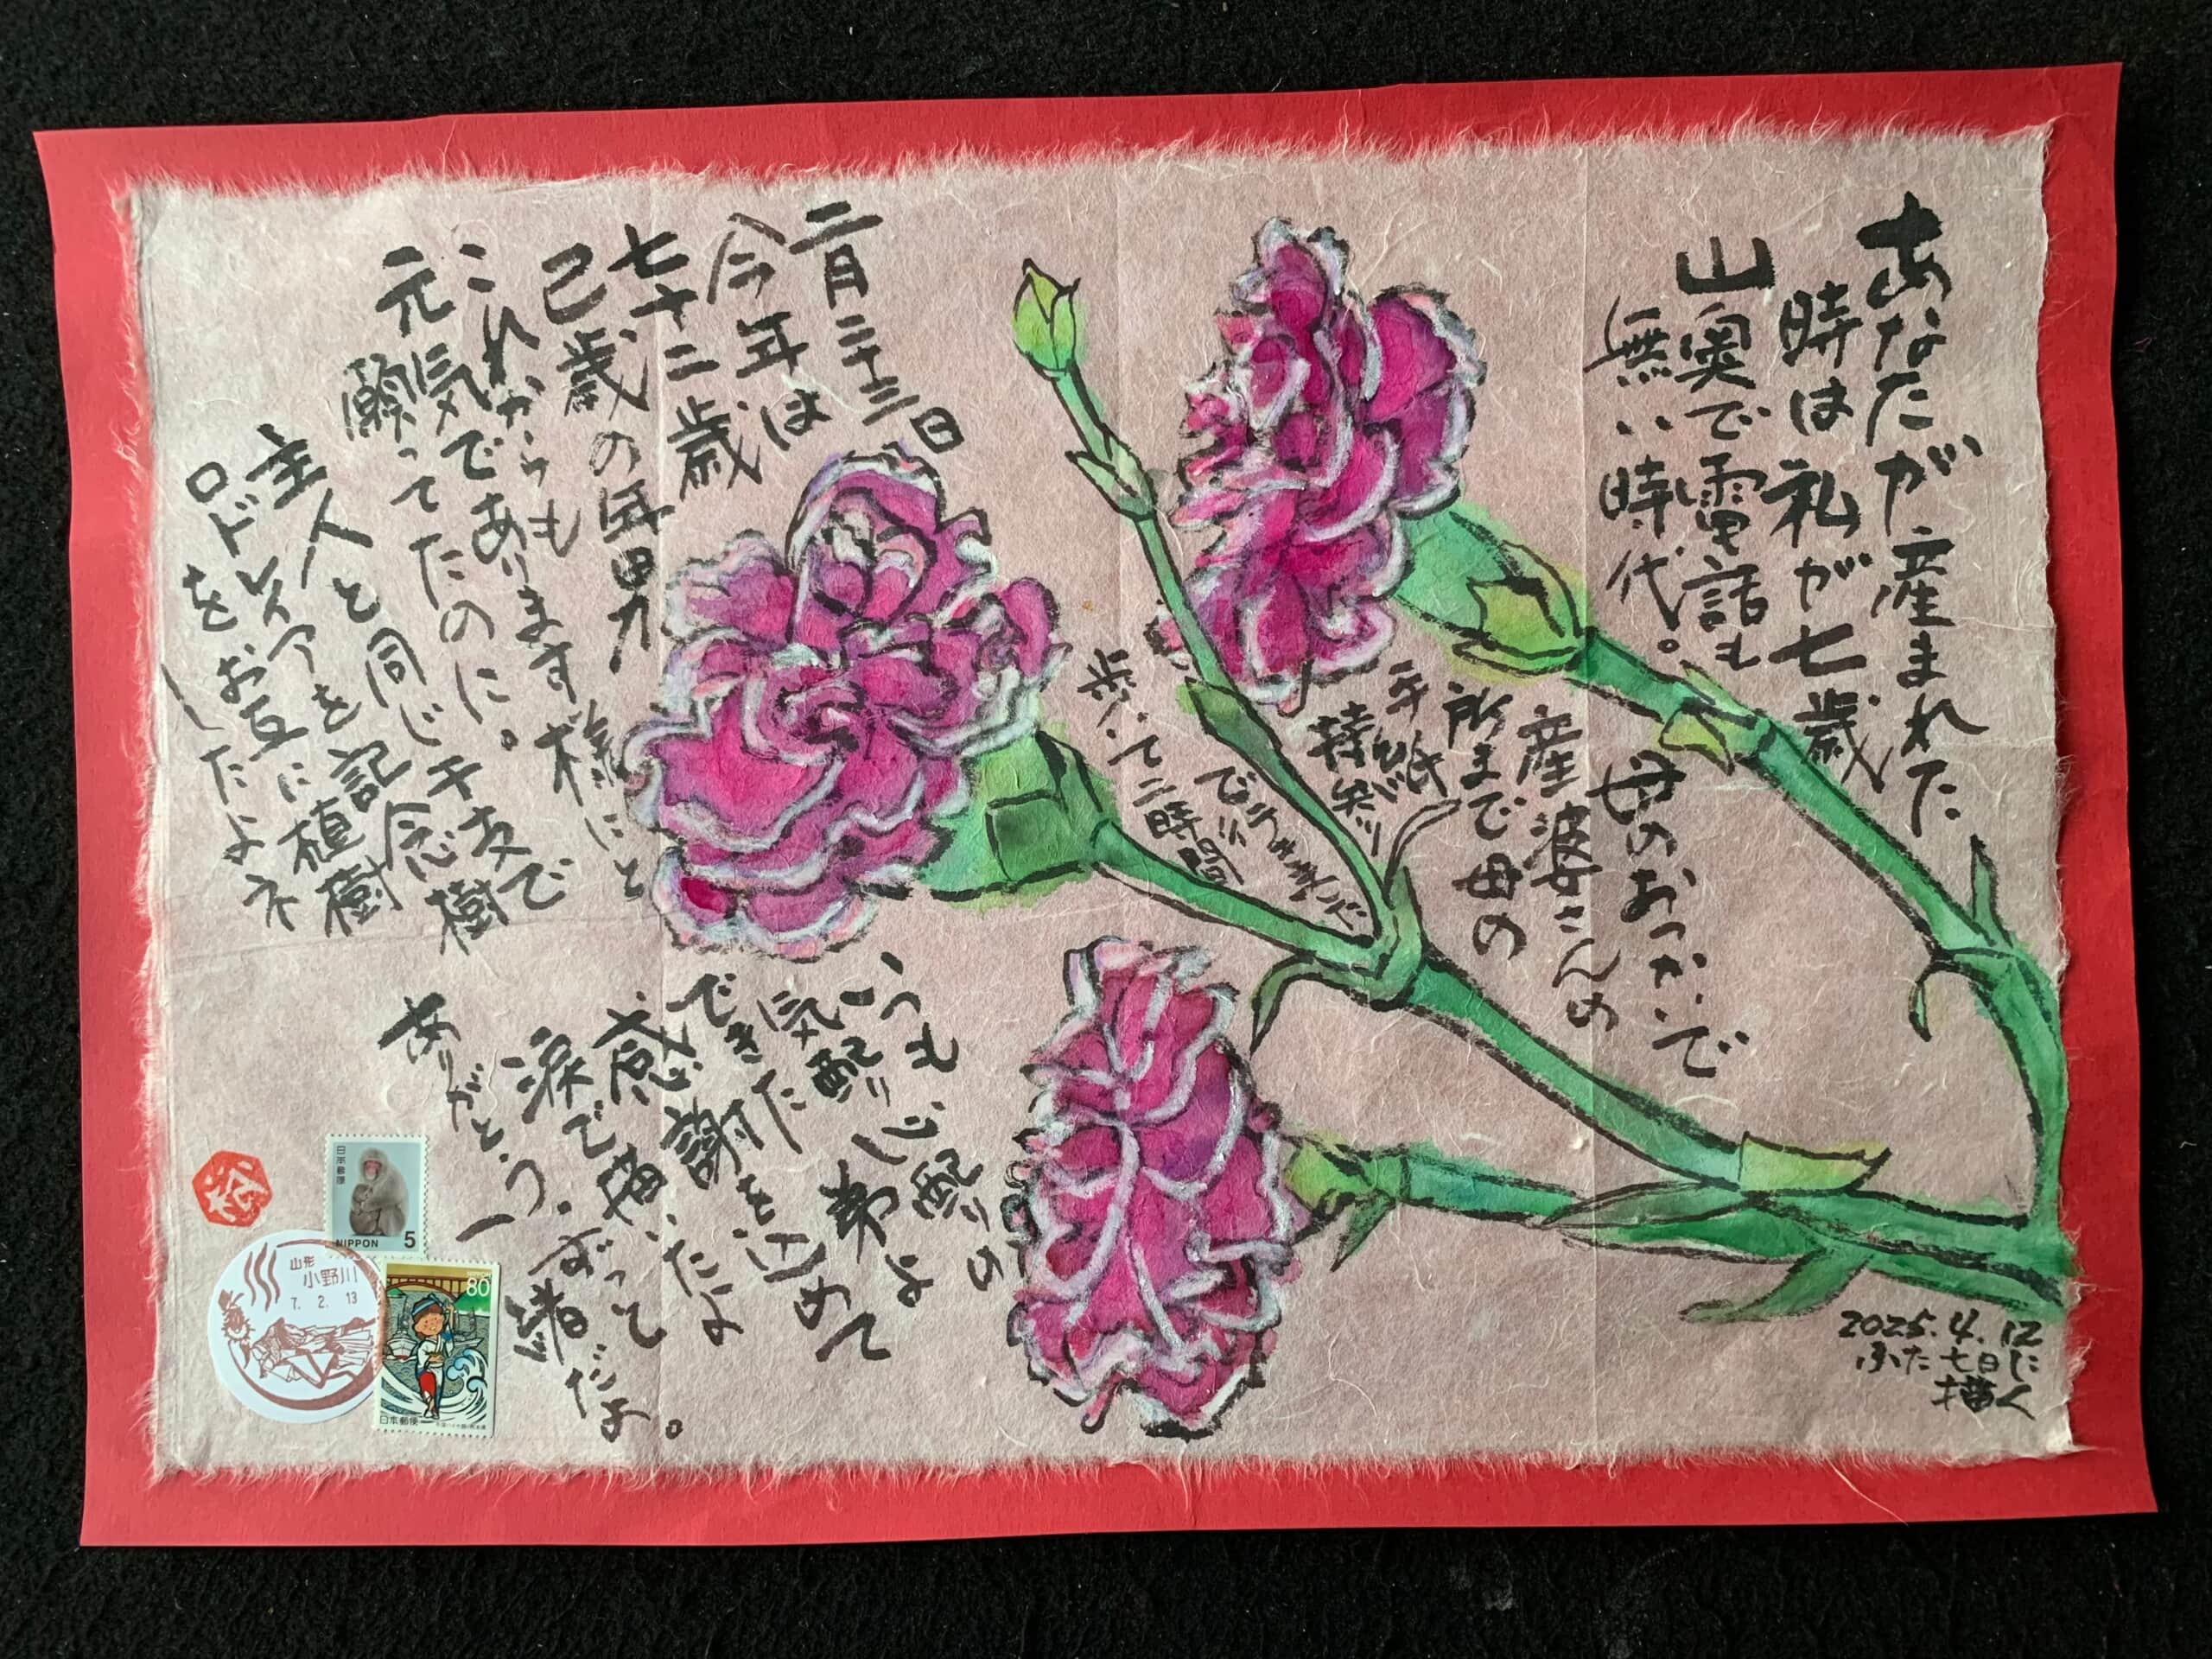 あなたが産まれた
時は私が七歳
山奥で電話も
無い時代。
母のおつかいで
産婆さんの
所まで母の
手紙
持参
歩いて二時間
二月二十三日
今年は
七十二歳
己歳の年男
これからも
元気であります様にと
願ってたのに。
主人と同じ干支で
ロドレイアを記念樹
をお互に植樹
したよネ
いつも心配りの
気配り 弟よ
できた
感謝を込めて
涙で描いたよ
ありがとう。ずって
一緒だよ。
2025.4.12
ふた七日に
描く
日本郵便
NIPPON 5
山形
小野川
7. 2. 13
80
日本郵便